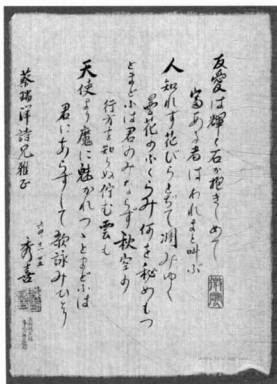 友愛は輝く石か抱きしめて
富める者はわれまと叫ぶ
人知れず花びらとぢて凋みゆく
曇花のふくらみ何を秘めもつ
とまどふは君のみならず秋空の
行方を知らぬ佇む雲も
天使より魔に魅かれつつとまどふは
君にあらずして歌詠みひとり
蔡瑞洋詩兄雅正
秀喜